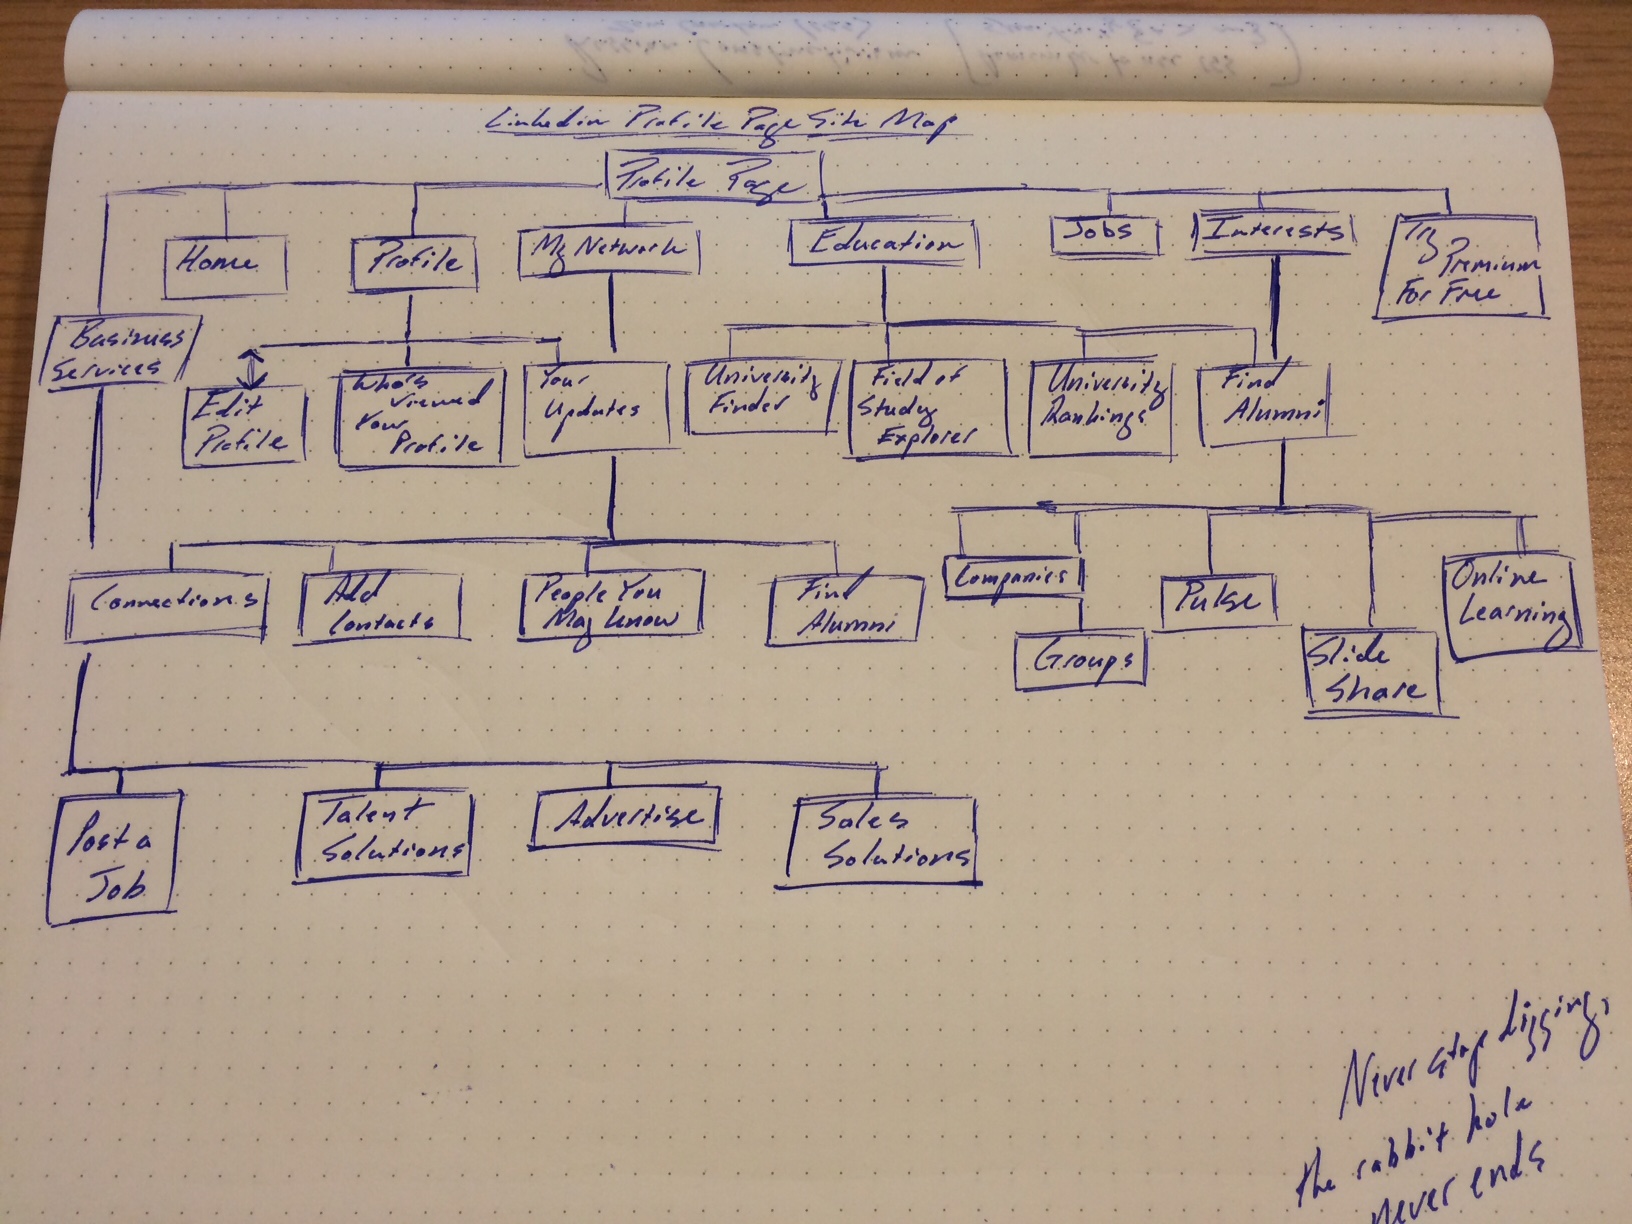 Linkedin Profile Page Site Map
Profile Page
Home
Profile
My Network
Education
Jobs
Interests
Try
Premium
For Free
Business
Services
Edit
Profile
Who's
Viewed
Your
Profile
Your
Updates
University
Finder
Field of
Study
Explorer
University
Rankings
Find
Alumni
Connections
Add
Contacts
People You
May Know
Find
Alumni
Companies
Groups
Pulse
Slide
Share
Online
Learning
Post a
Job
Talent
Solutions
Advertise
Sales
Solutions
Never stop digging,
the rabbit hole
never ends